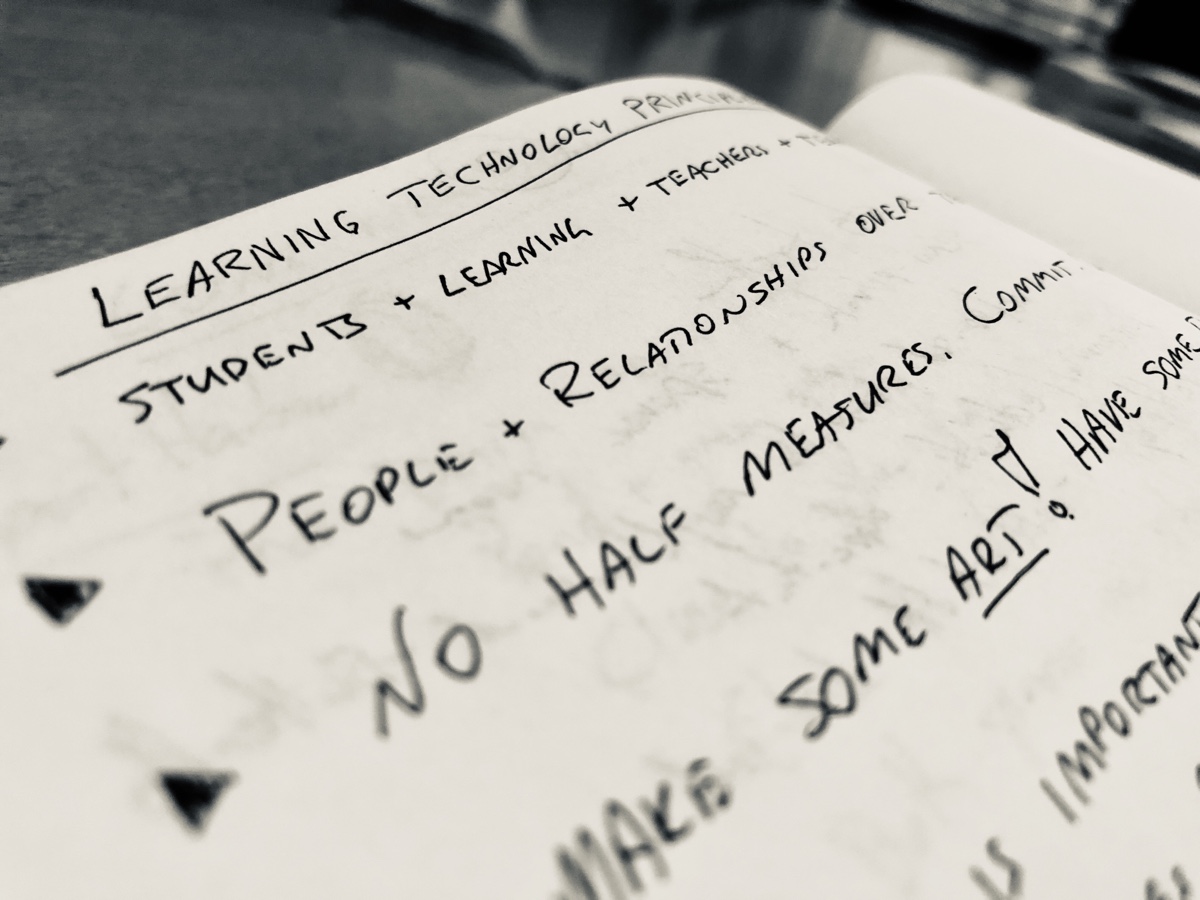 LEARNING TECHNOLOGY
STUDENTS + LEARNING + TEACHERS +
PEOPLE + RELATIONSHIPS OVER
NO HALF MEASURES. COMMIT.
MAKE SOME ART! HAVE SOME
IS IMPORTANT